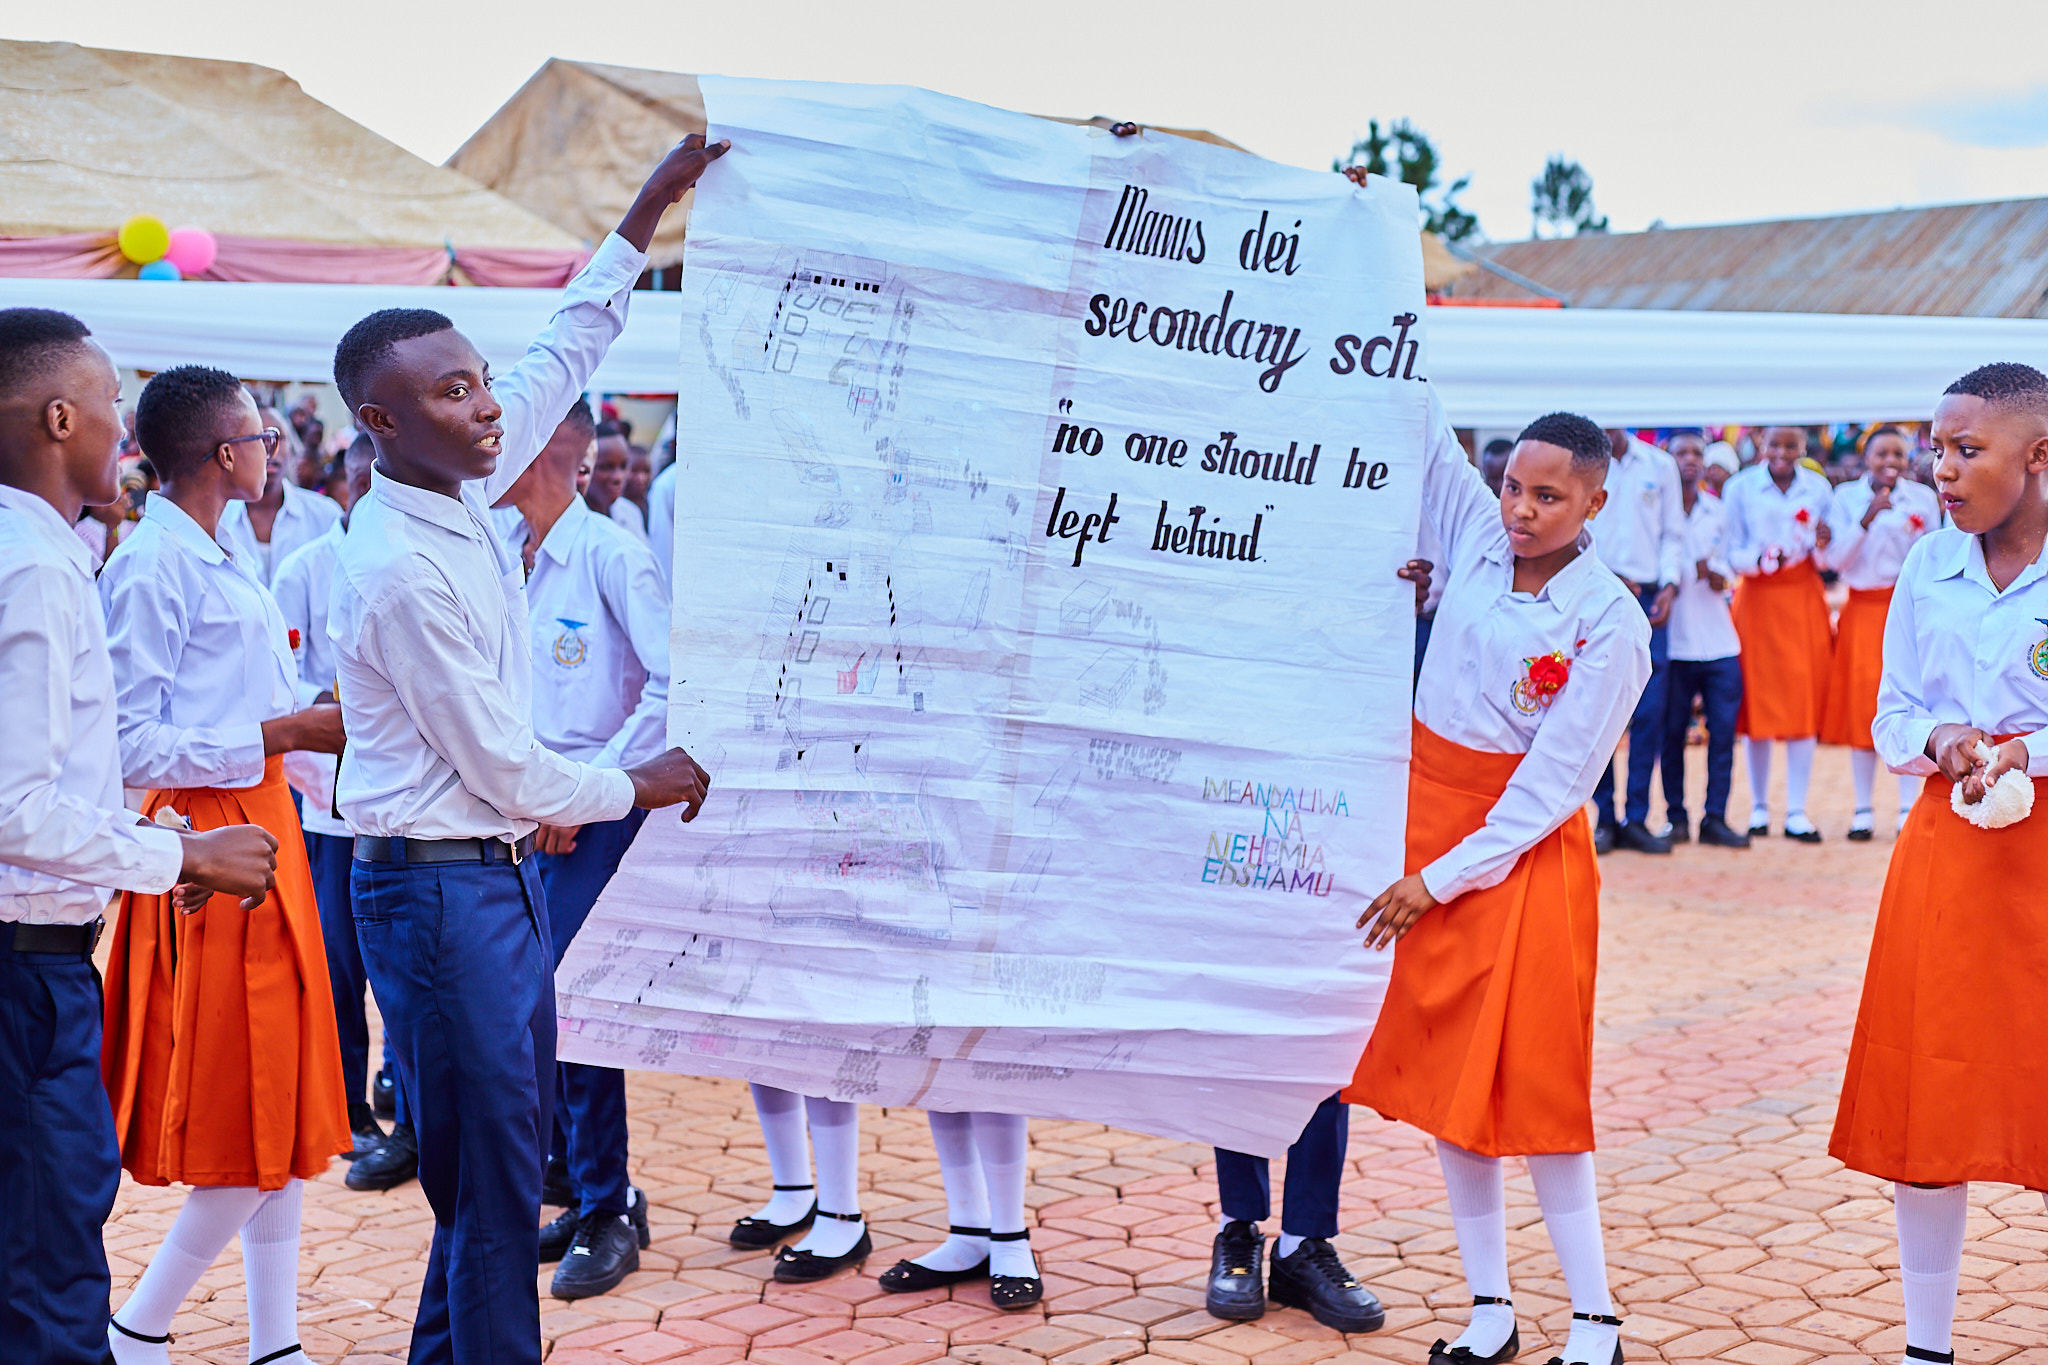 Manus dei
secondary sch..
"no one should be
left behind".
IMEANDALIWA
NA
NEHEMIA
EDSHAMU